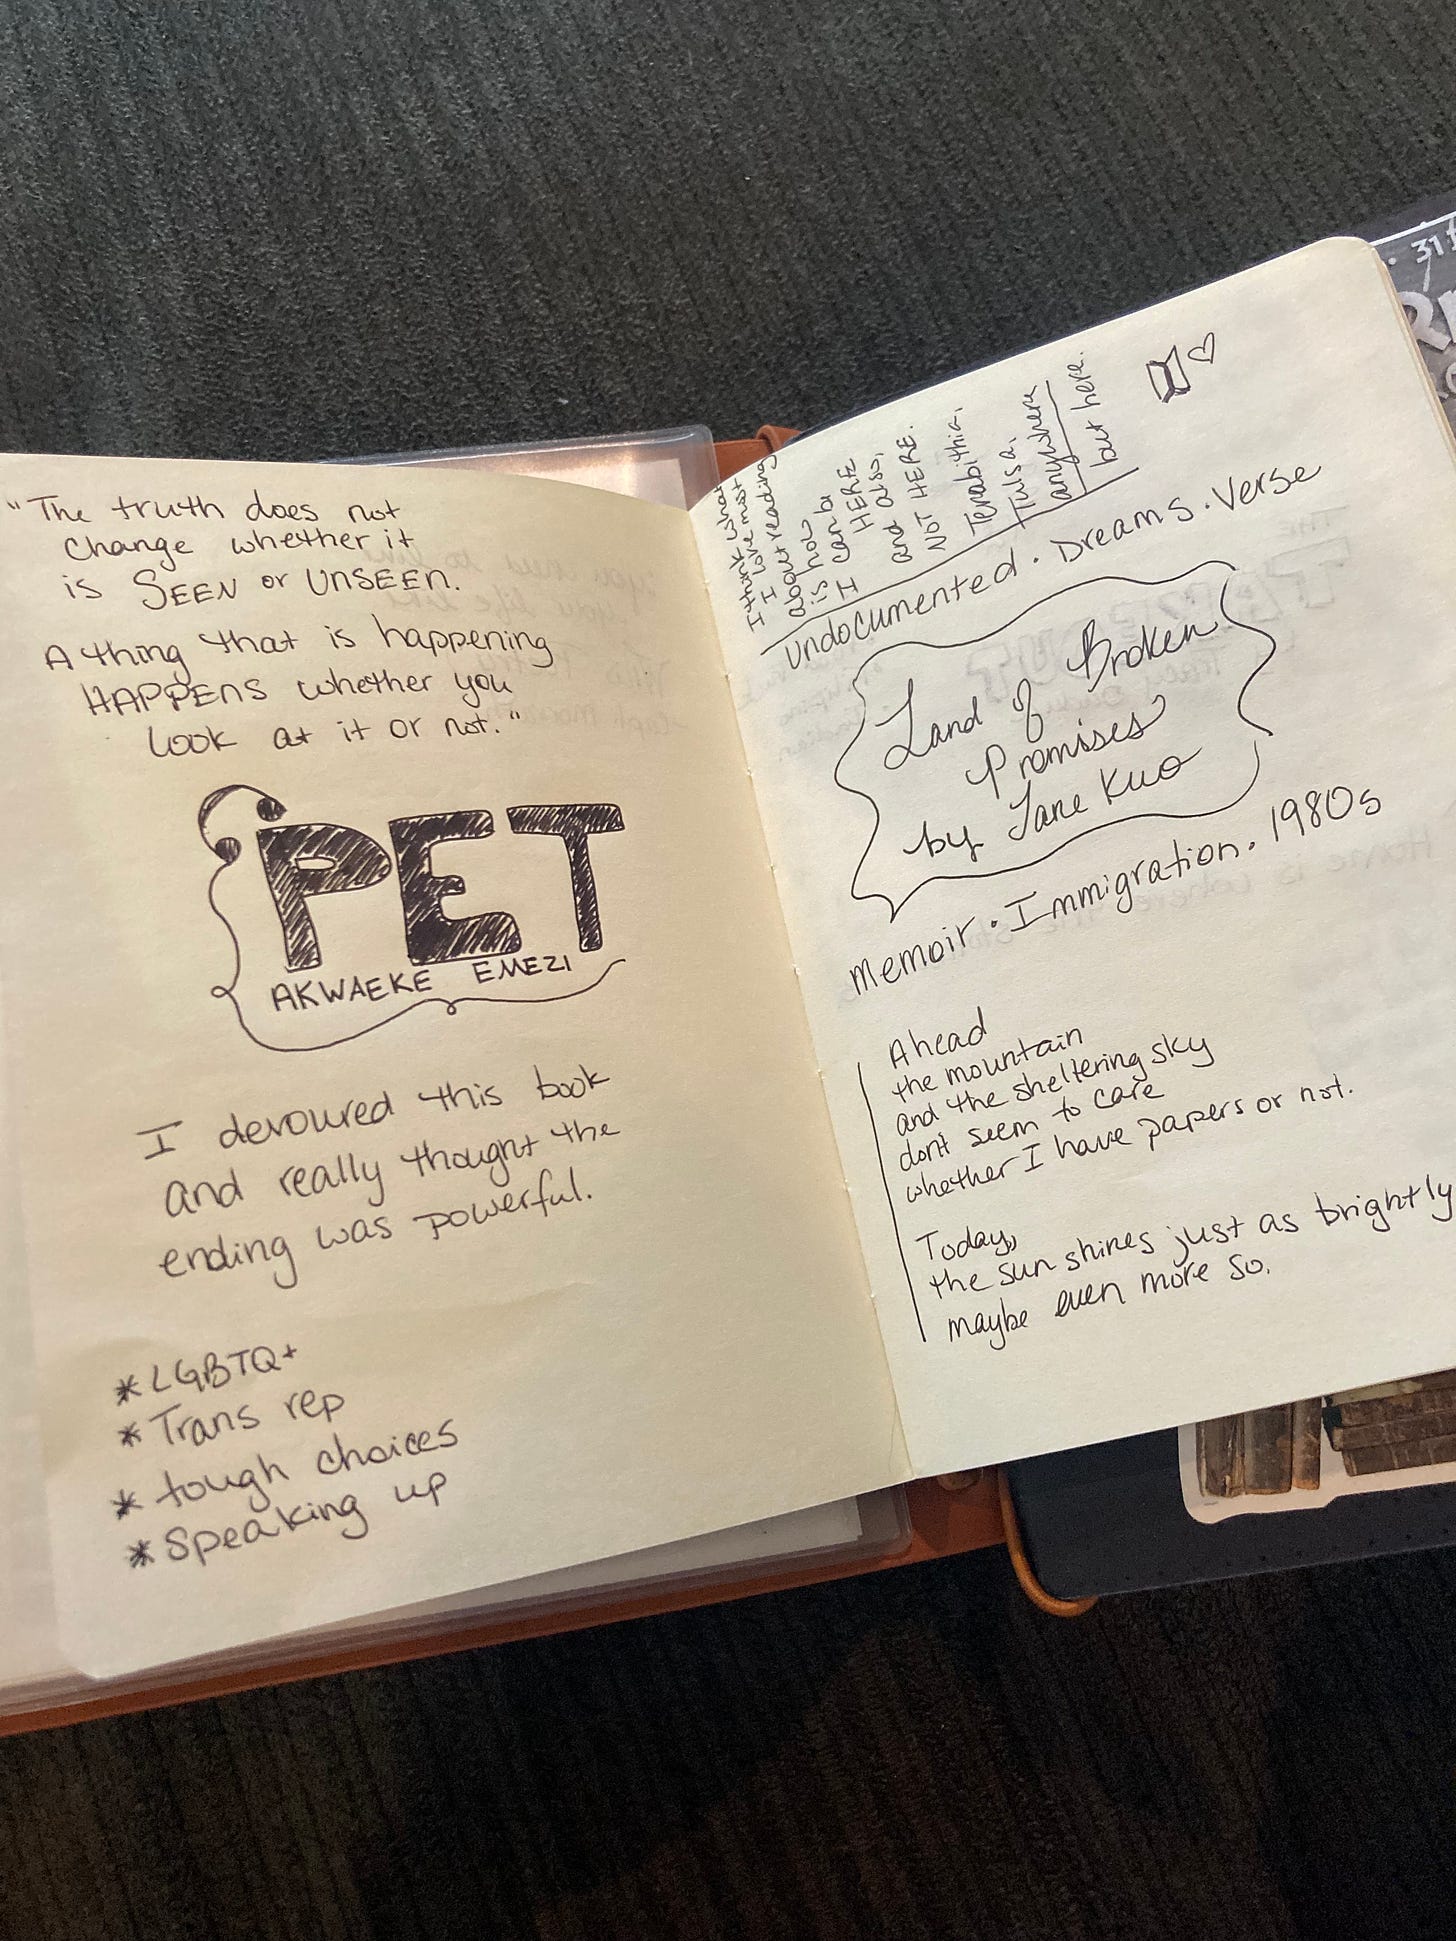 "The truth does not
change whether it
is SEEN or UNSEEN.
A thing that is happening
HAPPENS whether you
look at it or not."
PET
AKWAEKE EMEZI
I devoured this book
and really thought the
ending was powerful.
* LGBTQ+
* Trans rep
* tough choices
* Speaking up
I think what
I love most
about reading
is how
I can be
HERE
and also,
NOT HERE.
Terabithia,
Tulsa,
anywhere
but here.
Undocumented. Dreams. Verse
Land of Broken
Promises
by Jane Kuo
Memoir. Immigration. 1980s
Ahead
the mountain
and the sheltering sky
don't seem to care
whether I have papers or not.
Today,
the sun shines just as brightly
maybe even more so.
31